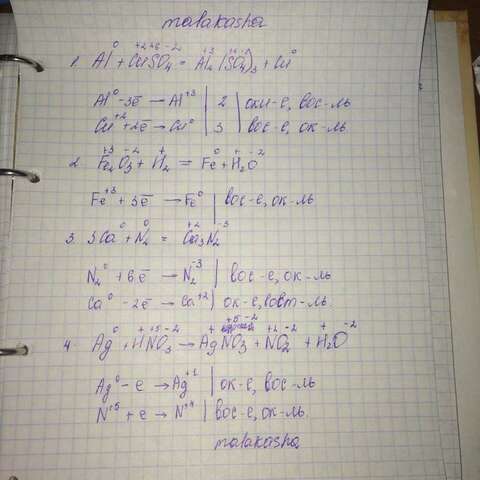 malakasha
1. Al⁰ + Cu⁺²S⁺⁶O₄⁻² = Al₂⁺³(SO₄)₃ + Cu⁰
Al⁰ - 3e̅ → Al⁺³ | 2 | оки-е, вос-ль
Cu⁺² + 2e̅ → Cu⁰ | 3 | вос-е, ок-ль.
2. Fe₂⁺³O₃⁻² + H₂⁺ = Fe⁰ + H₂⁺O⁻²
Fe⁺³ + 3e̅ → Fe⁰ | вос-е, ок-ль
3. 3Ca⁰ + N₂⁰ = Ca₃⁺²N₂⁻³
N₂⁰ + 6e̅ → N₂⁻³ | вос-е, ок-ль
Ca⁰ - 2e̅ → Ca⁺² | ок-е, восст-ль.
4. Ag⁰ + H⁺N⁺⁵O₃⁻² → Ag⁺N⁺⁵O₃⁻² + N⁺⁴O₂⁻² + H₂⁺O⁻²
Ag⁰ - e → Ag⁺¹ | ок-е, вос-ль
N⁺⁵ + e → N⁺⁴ | вос-е, ок-ль.
malakasha